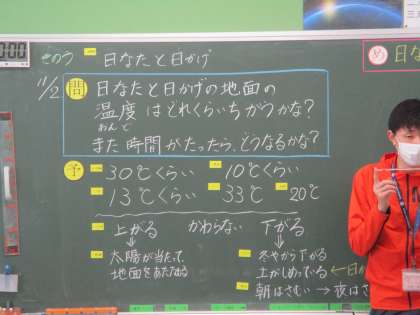 00:00
きのう 日なたと日かげ
11/2
問 日なたと日かげの地面の
温度はどれくらいちがうかな?
おんど
また時間がたったら、どうなるかな?
予 30℃くらい 10℃くらい
13℃くらい 33℃ 20℃
上がる かわらない 下がる
太陽が当たって、
地面をあたためる
冬やから下がる
土がしめっている ←日か
朝はさむい → 夜はさ
め 日な